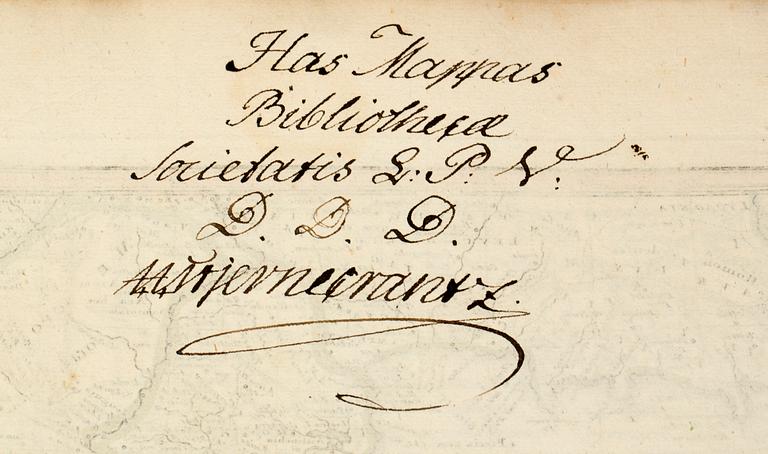 Has Mappas
Bibliothecæ
Societatis L: P: V:
D. D. D.
Stjernecrantz.